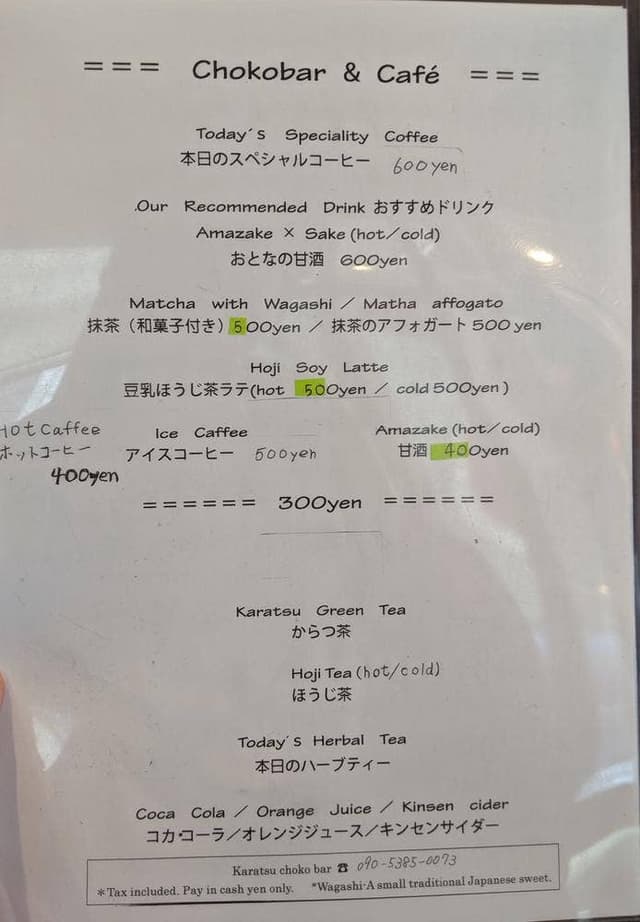 === Chokobar & Café ===
Today´s Speciality Coffee
本日のスペシャルコーヒー 600yen
.Our Recommended Drink おすすめドリンク
Amazake × Sake (hot/cold)
おとなの甘酒 600yen
Matcha with Wagashi / Matha affogato
抹茶（和菓子付き）500yen / 抹茶のアフォガート 500 yen
Hoji Soy Latte
豆乳ほうじ茶ラテ(hot 500yen / cold 500yen )
Hot Caffee
ホットコーヒー
400yen
Ice Caffee
アイスコーヒー 500yen
Amazake (hot/cold)
甘酒 400yen
====== 300yen ======
Karatsu Green Tea
からつ茶
Hoji Tea (hot/cold)
ほうじ茶
Today´s Herbal Tea
本日のハーブティー
Coca Cola / Orange Juice / Kinsen cider
コカ・コーラ／オレンジジュース／キンセンサイダー
Karatsu choko bar ☎ 090-5385-0073
*Tax included. Pay in cash yen only. *Wagashi-A small traditional Japanese sweet.